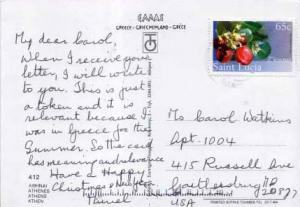 ΕΛΛΑΣ
GREECE - GRIECHENLAND - GRÈCE
My dear Carol,
When I receive your
letter, I will write
to you. This is just
a token and it is
relevant because I
was in Greece for the
Summer. So the card
has meaning and relevance
Have a Happy
Christmas &
412
ΑΘΗΝΑΙ
ATHENES
ATHENS
ATHEN
65c
Saint Lucia
Ms Carol Watkins
Apt. 1004
415 Russell Ave
Gaithersburg MD
20877
USA